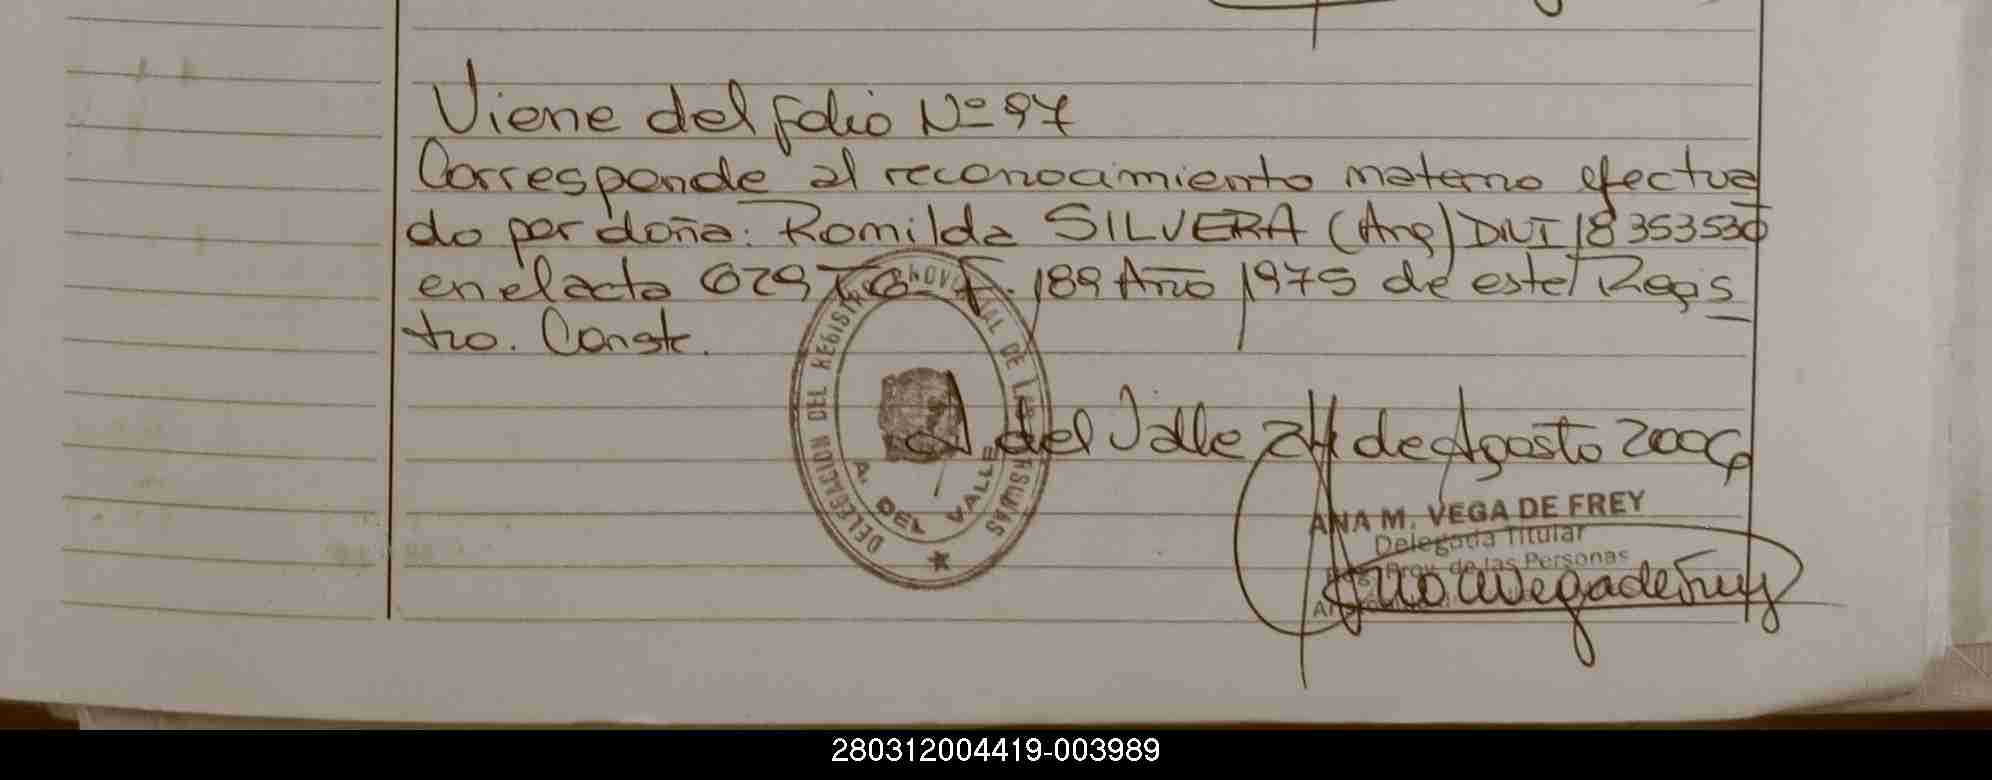 Viene del folio Nº 97
Corresponde al reconocimiento materno efectua
do por doña: Romilda SILVERA (Arg) DNI 18353530
en el acta 629 Tº F. 189 Año 1975 de este Regis
tro. Conste.
A del Valle 24 de Agosto 2006
DELEGACION DEL REGISTRO PROVINCIAL DE LAS PERSONAS
A. DEL VALLE
ANA M. VEGA DE FREY
Delegada Titular
Prov. de las Personas
Ana Vega de Frey
280312004419-003989